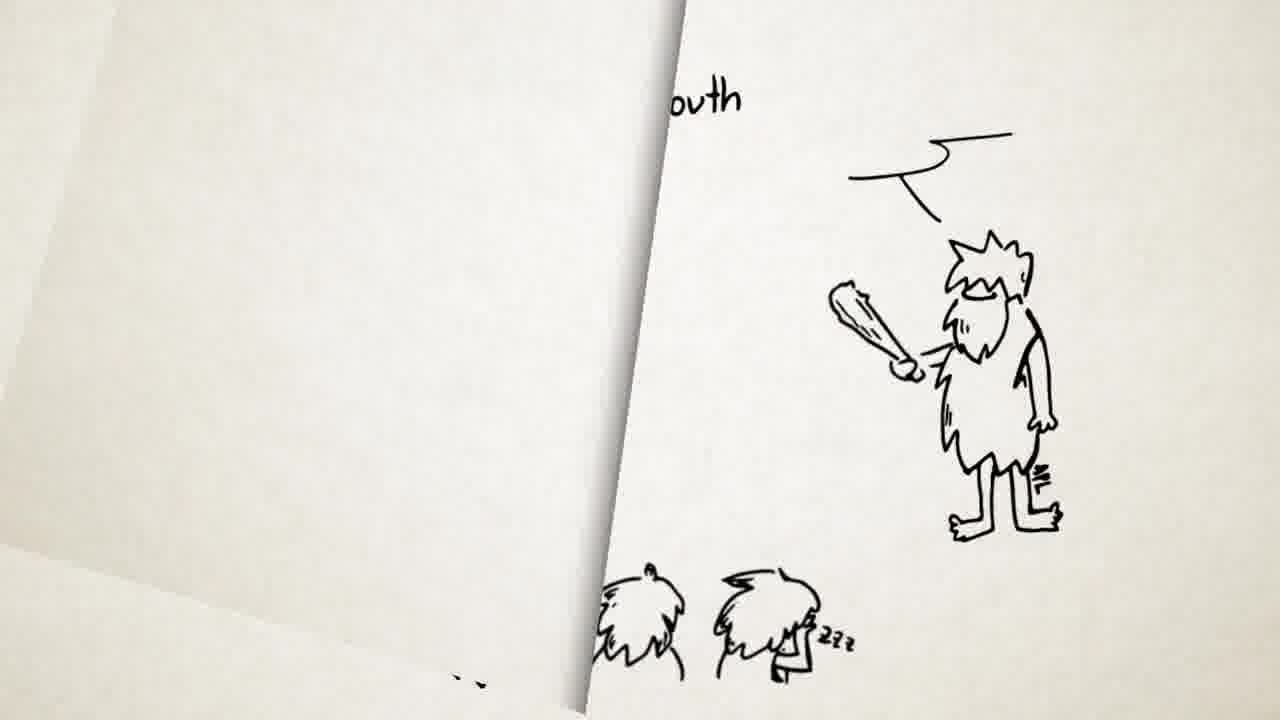 outh
zzz